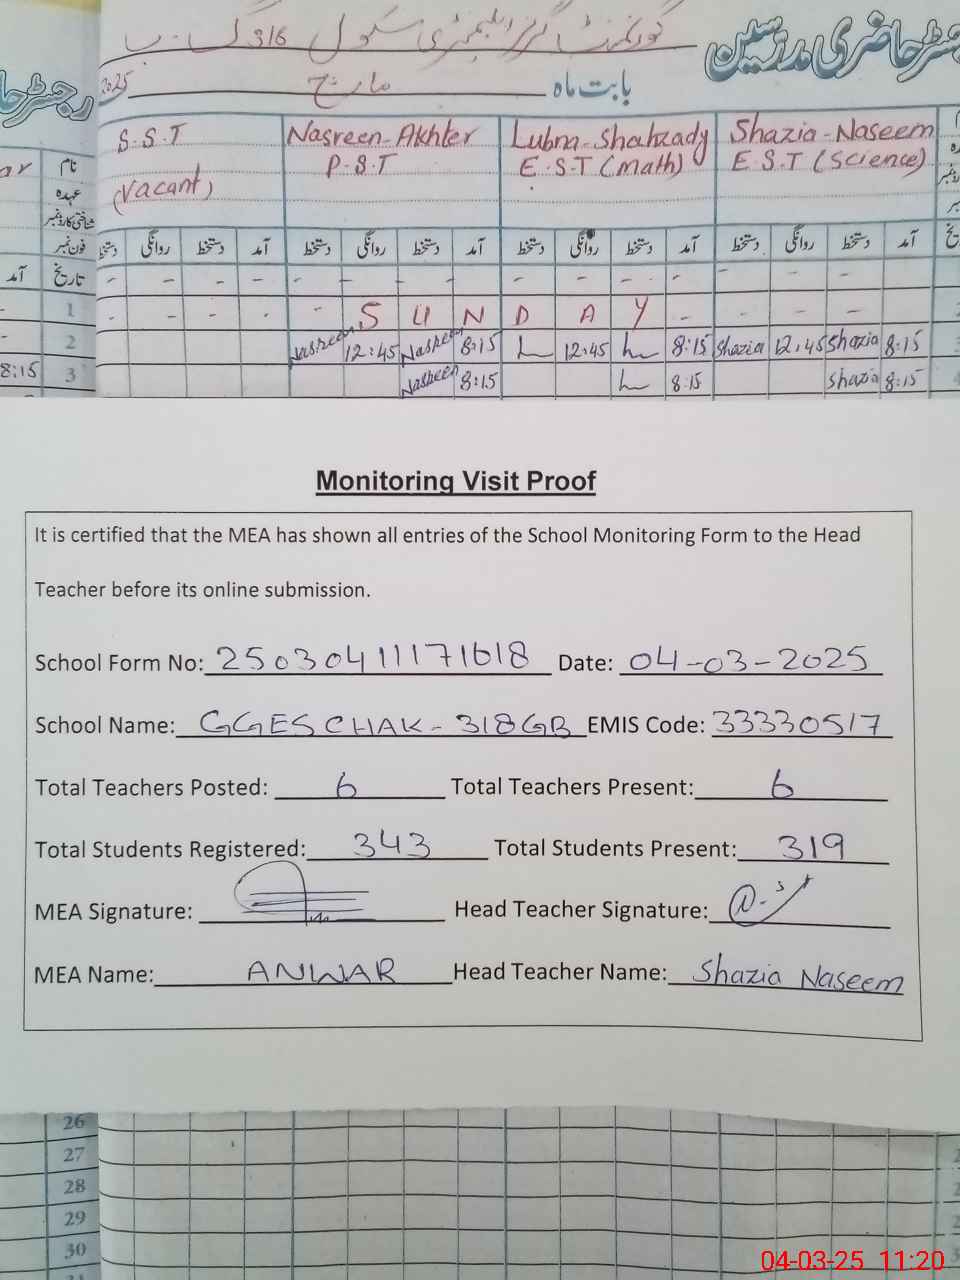 رجسٹر حاضری مدرسین گورنمنٹ گرلز ایلیمنٹری سکول 316 گ-ب
بابت ماہ مارچ 2025
Shazia-Naseem Lubna-Shahzady Nasreen-Akhter S.S.T
E.S.T (Science) E.S.T (math) P.S.T (Vacant)
نام
عہدہ
شناختی کارڈ نمبر
فون نمبر آمد دستخط روانگی دستخط آمد دستخط روانگی دستخط آمد دستخط روانگی دستخط دستخط روانگی دستخط
آمد تاریخ - - - - - - - - - -
1 - - - - - S U N D A Y - - - -
2 Nasreen 12:45 Nasreen 8:15 12:45 8:15 Shazia 12:45 Shazia 8:15
8:15 3 Nasreen 8:15 8:15 Shazia 8:15
Monitoring Visit Proof
It is certified that the MEA has shown all entries of the School Monitoring Form to the Head
Teacher before its online submission.
School Form No: 25030411171618 Date: 04-03-2025
School Name: GGES CHAK-318GB EMIS Code: 33330517
Total Teachers Posted: 6 Total Teachers Present: 6
Total Students Registered: 343 Total Students Present: 319
MEA Signature: Head Teacher Signature:
MEA Name: ANWAR Head Teacher Name: Shazia Naseem
26
27
28
29
30
31
04-03-25 11:20